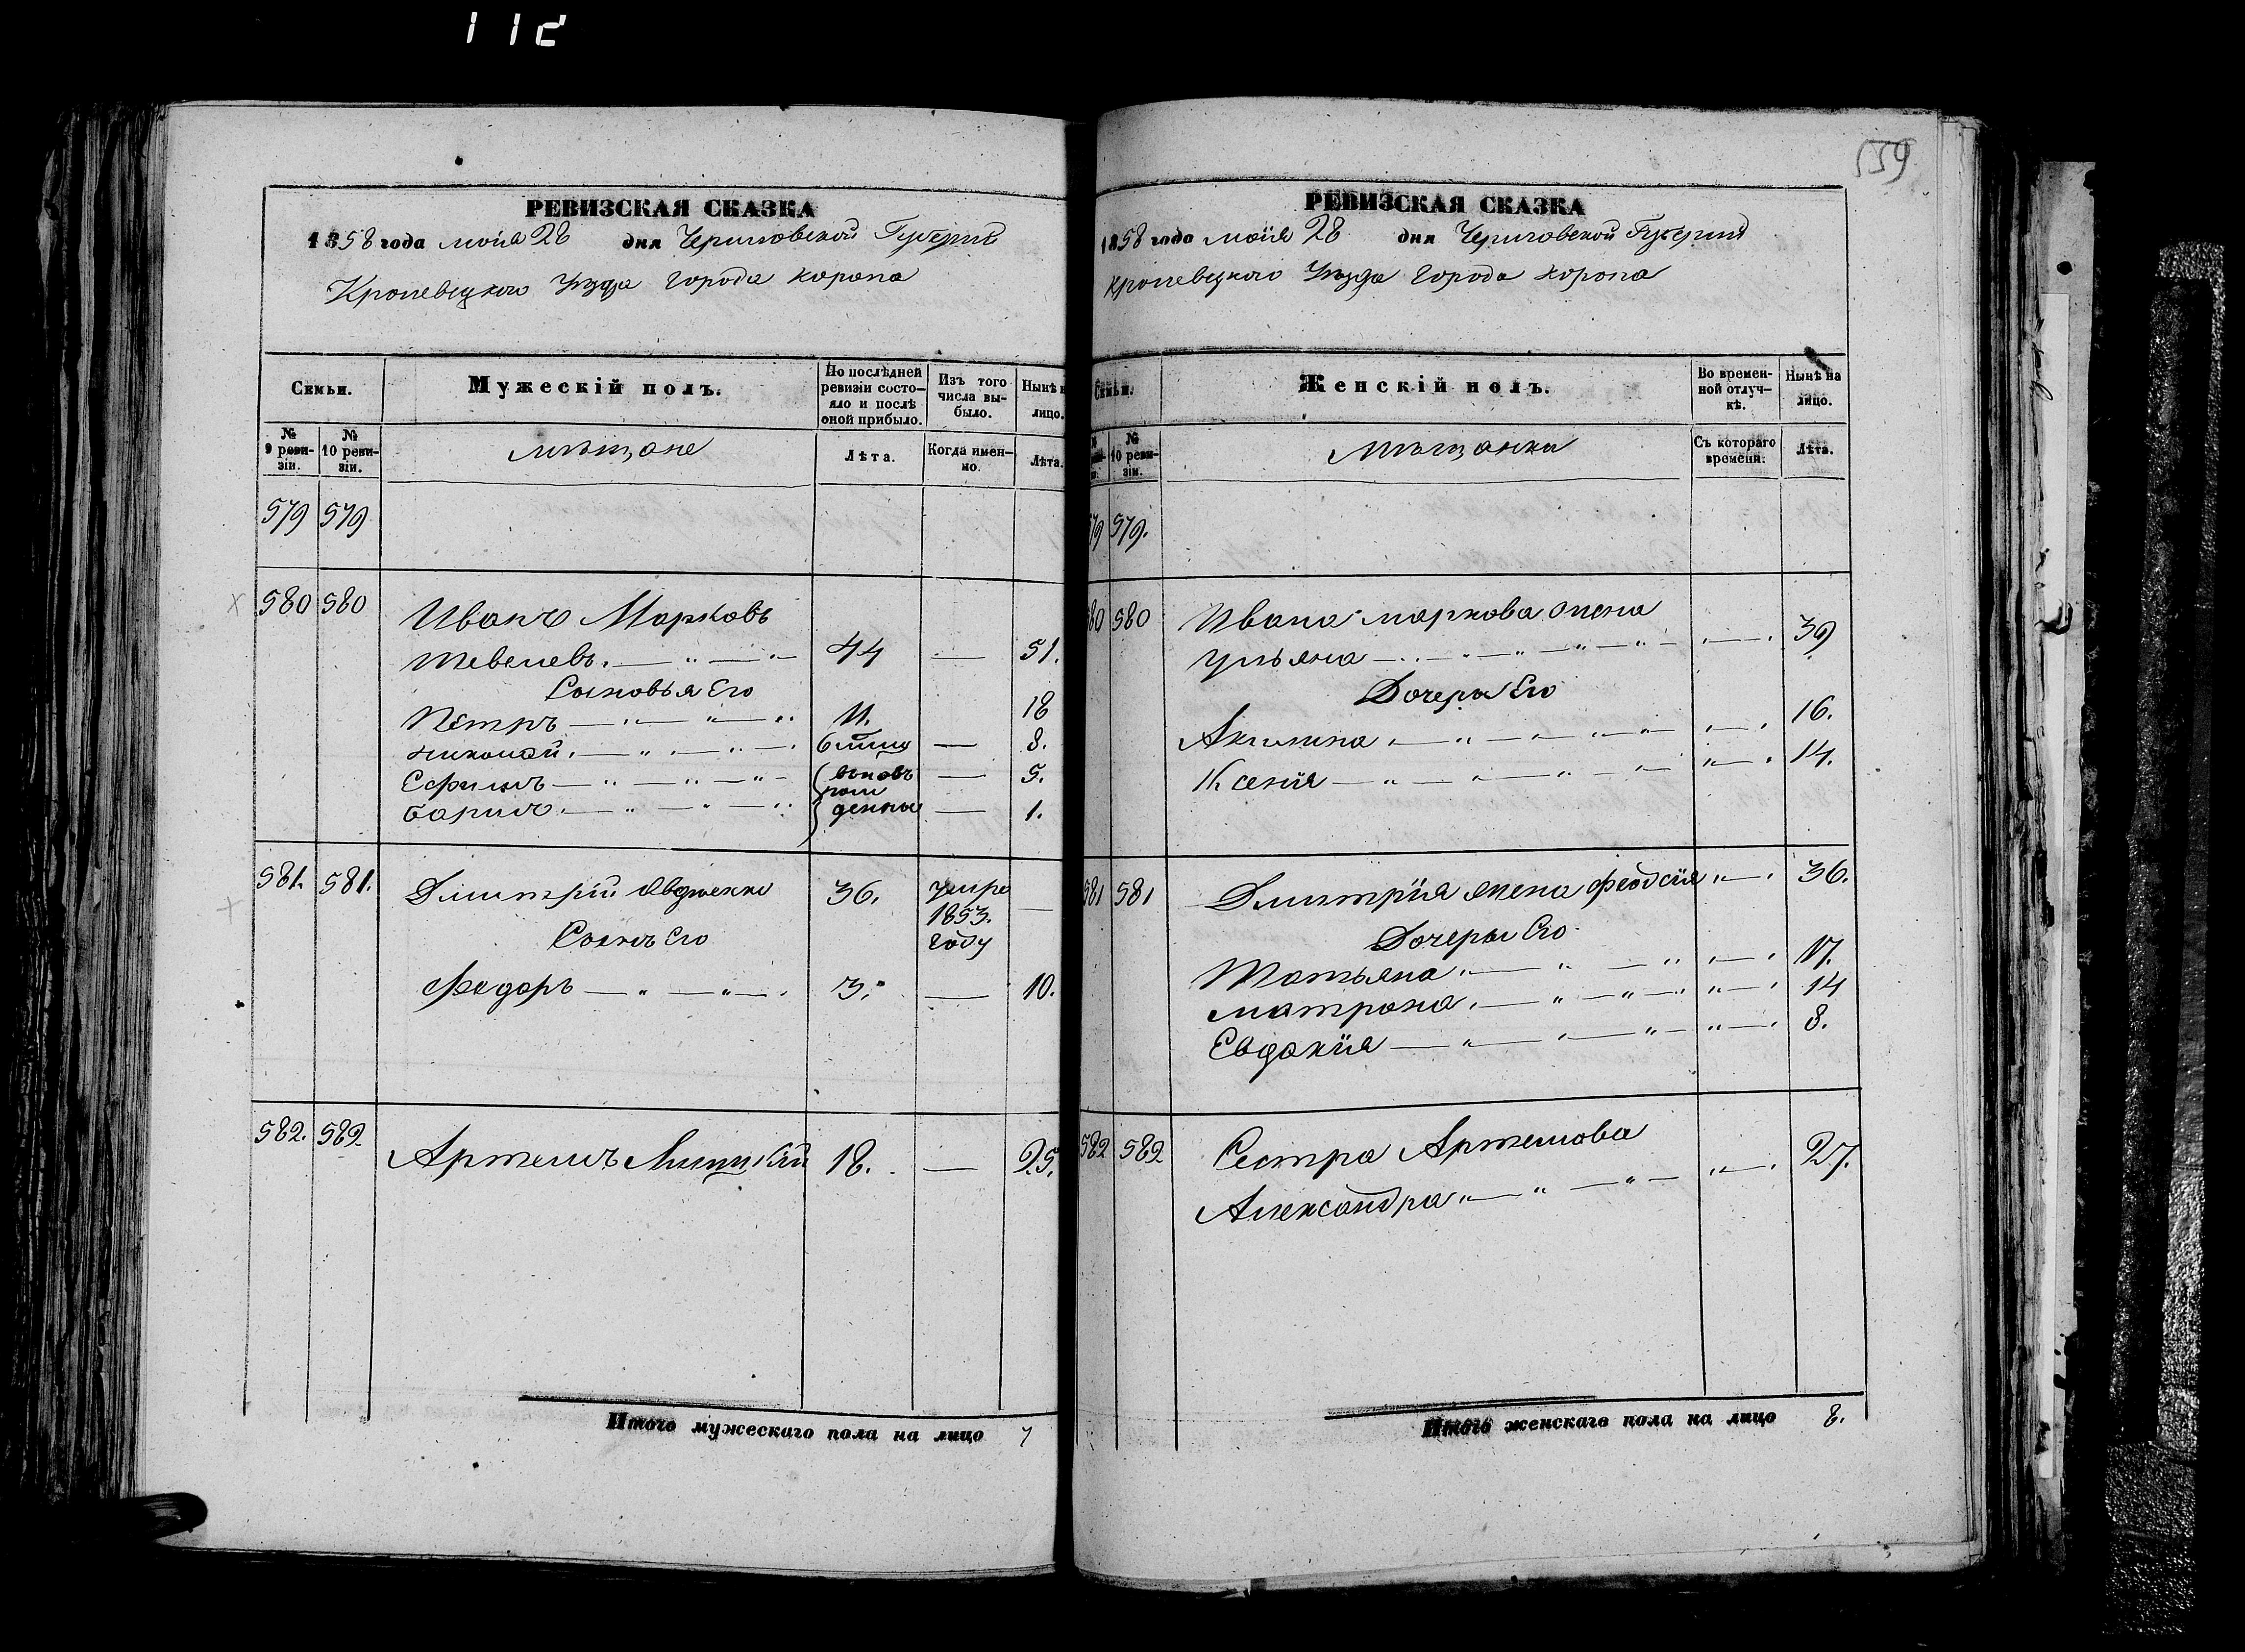 112
РЕВИЗСКАЯ СКАЗКА
1858 года маія 28 дня Черниговской Губерніи
Кролевецкого Уѣзда города коропа
Семьи.
Мужескій полъ.
По послѣдней ревизіи состояло и послѣ оной прибыло.
Изъ того числа выбыло.
Нынѣ н
лицо.
№ 9 ревизіи.
№ 10 ревизіи.
мѣщане
Лѣта.
Когда именно.
Лѣта.
579 579
580 580 Иванъ Марковъ
Шевелевъ 44 — 51.
Сыновья Его
Петръ 11. 18
николай 6 — 8.
Ефимъ вновь — 5.
рож
Борисъ денны — 1.
581. 581. Дмитрій 36. умре —
1853.
году
Сынъ Его
Федоръ 3. — 10.
582. 582 Артемъ 18. — 25.
Итого мужескаго пола на лицо 7
159
РЕВИЗСКАЯ СКАЗКА
1858 года маія 28 дня Черниговской Губерніи
кролевецкого Уѣзда города коропа
Семьи.
Женскій полъ.
Во временной отлучкѣ.
Нынѣ на лицо.
№ 10 ревизіи.
мѣщанки
Съ котораго времени.
Лѣта.
79 579.
80 580 Ивана маркова жена
Ульяна 39
Дочеры Его
Акилина 16.
Ксенія 14.
581 581 Дмитрія жена Феодсія 36.
Дочеры Его
Татьяна 17.
матрона 14
Евдокія 8.
582 582 Сестра Артемова
Александра 27.
Итого женскаго пола на лицо 8.